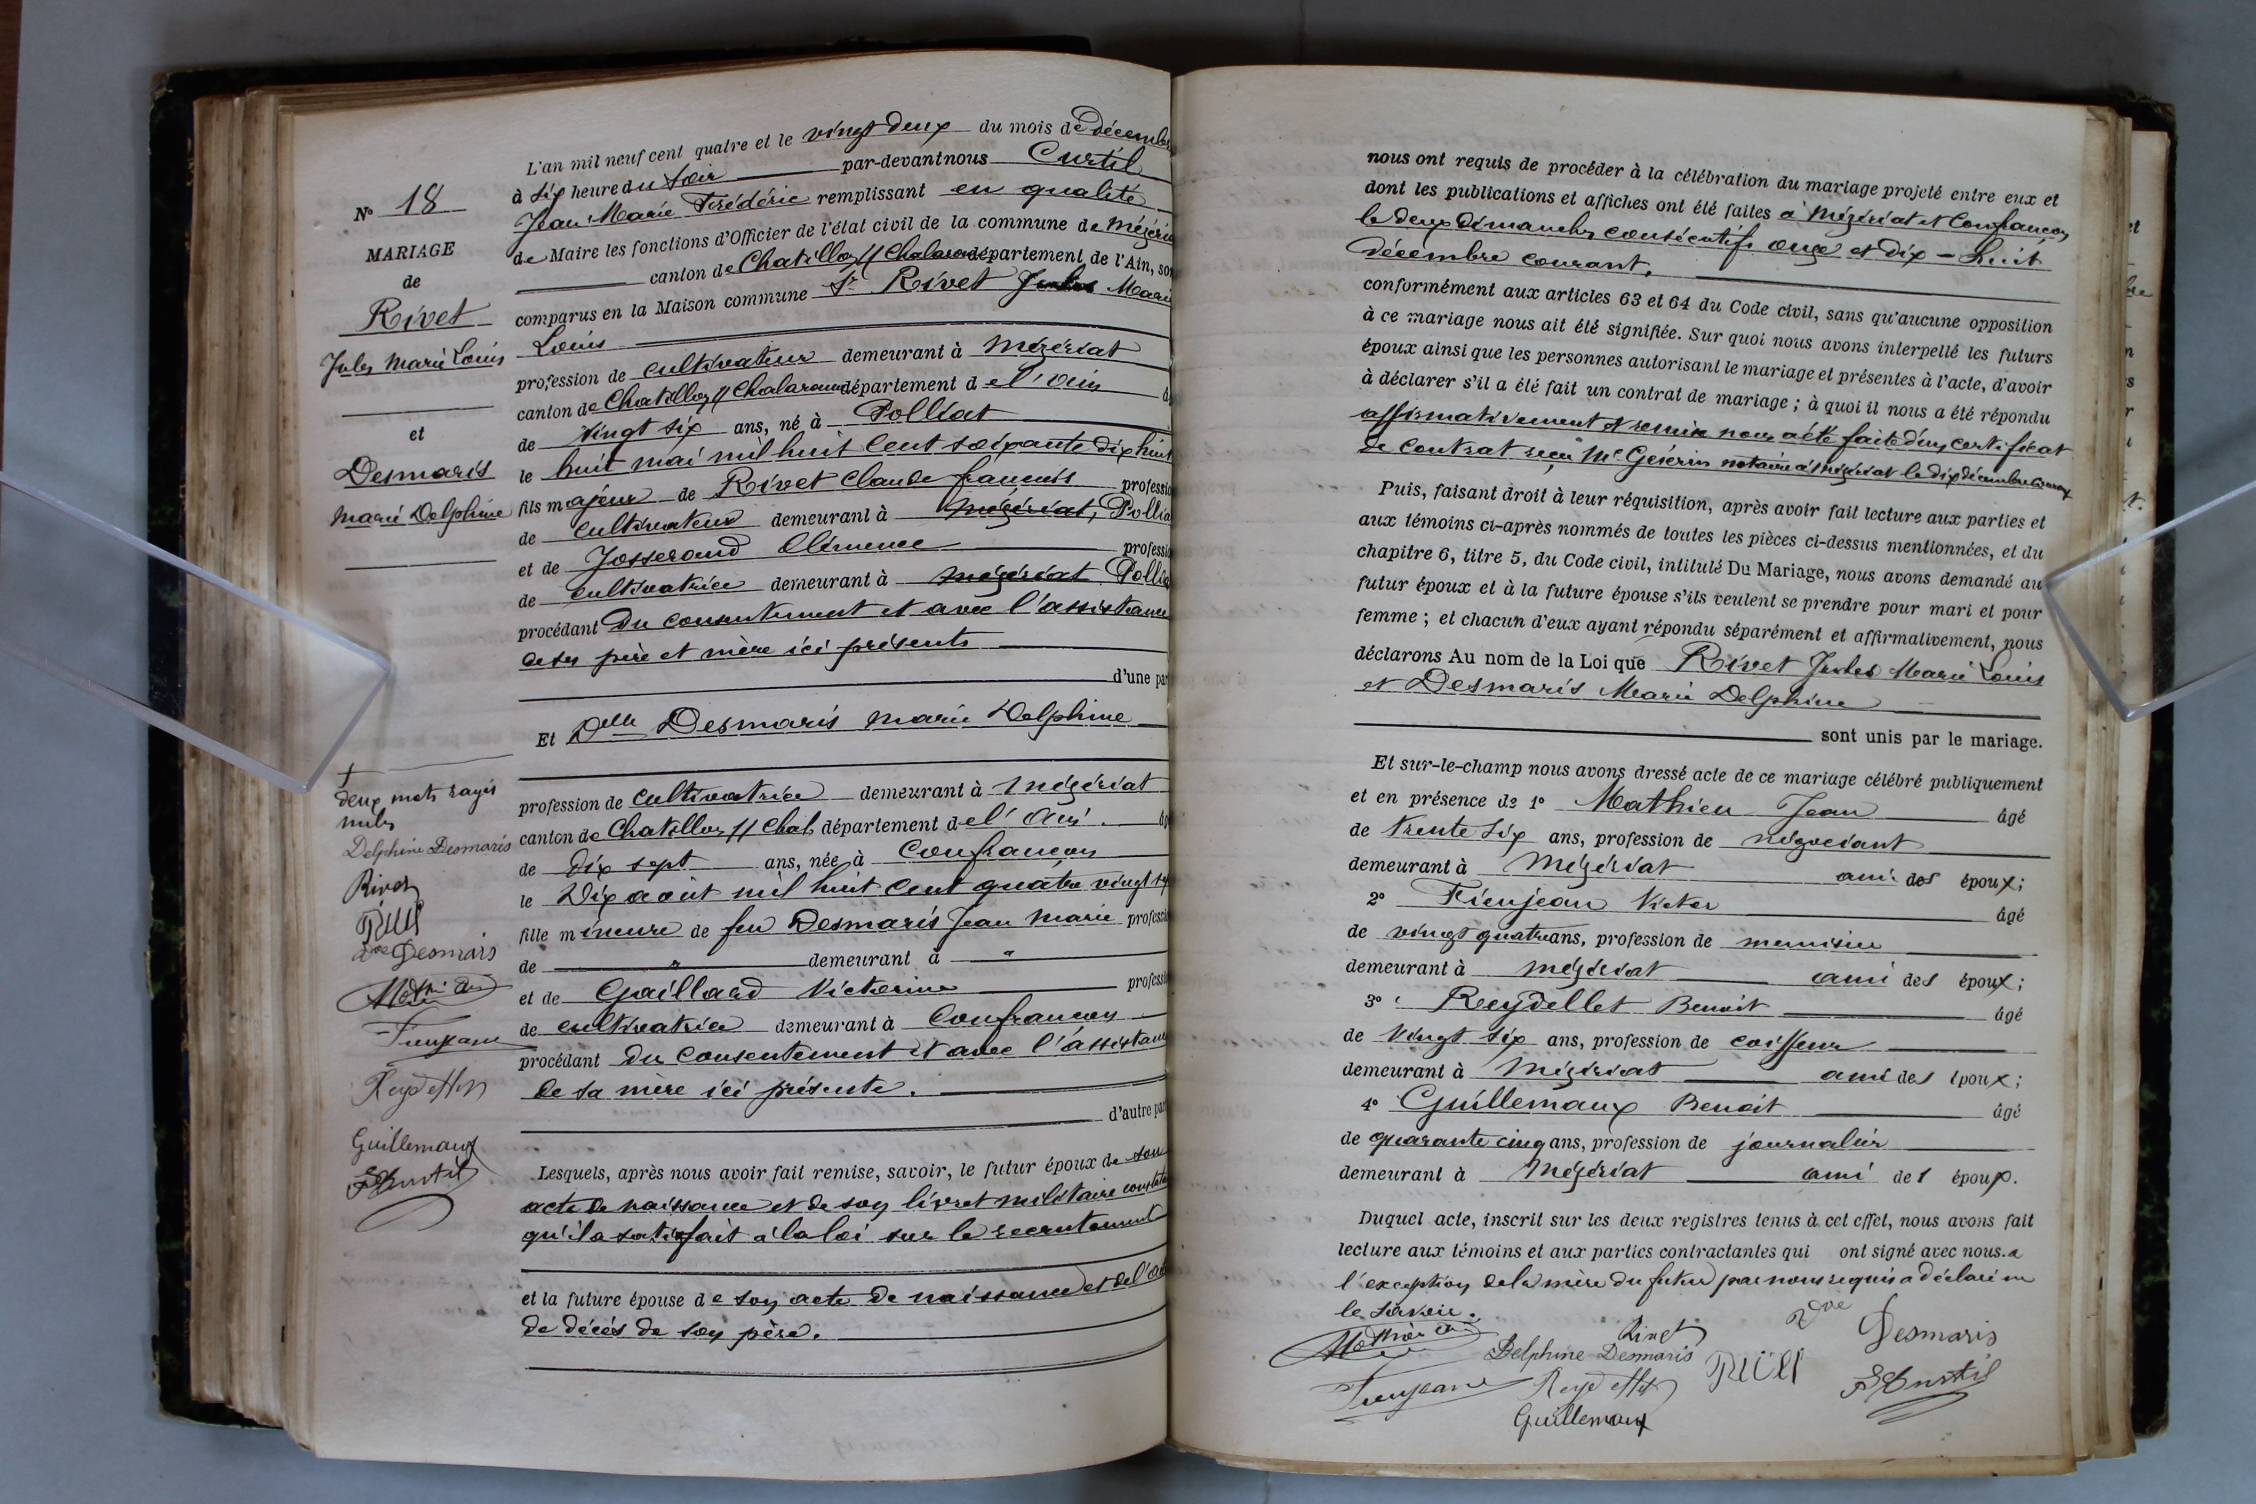 N° 18
MARIAGE
de
Rivet
Jules Marie Louis
et
Desmaris
Marie Delphine
deux mots rayés
nuls
Delphine Desmaris
Rivet
Desmaris
Reydellet
Guillemaux
Curtil
L'an mil neuf cent quatre et le vingt deux du mois de Décembre
à six heure du soir par-devant nous Curtil
Jean Marie Frédéric remplissant en qualité
de Maire les fonctions d'Officier de l'état civil de la commune de Mézéria
canton de Chatillon s/ Chalaronne département de l'Ain, son
comparus en la Maison commune Sr Rivet Jules Marie
Louis
profession de cultivateur demeurant à Mézériat
canton de Chatillon s/ Chalaronne département de l'Ain â
de vingt six ans, né à Polliat
le huit mai mil huit cent soixante dix huit
fils majeur de Rivet Claude François professio
de cultivateur demeurant à Mézériat, Pollia
et de Josserand Clémence professi
de cultivatrice demeurant à Mézériat Pollia
procédant du consentement et avec l'assistance
de ses père et mère ici présents
d'une par
Et Delle Desmaris Marie Delphine
profession de cultivatrice demeurant à Mézériat
canton de Chatillon s/ Chal. département de l'Ain âg
de dix sept ans, née à Confrançon
le Dix août mil huit cent quatre vingt sep
fille mineure de feu Desmaris Jean Marie professi
de " demeurant à "
et de Gaillard Victorine professi
de cultivatrice demeurant à Confrançon
procédant du consentement et avec l'assistance
de sa mère ici présente.
d'autre part
Lesquels, après nous avoir fait remise, savoir, le futur époux de son
acte de naissance et de son livret militaire constatan
qu'il a satisfait à la loi sur le recrutement
et la future épouse de son acte de naissance et de l'ac
de décès de son père.
nous ont requis de procéder à la célébration du mariage projeté entre eux et
dont les publications et affiches ont été faites à Mézériat et Confrançon
le deux dimanches consécutifs onze et dix-huit
décembre courant,
conformément aux articles 63 et 64 du Code civil, sans qu'aucune opposition
à ce mariage nous ait été signifiée. Sur quoi nous avons interpellé les futurs
époux ainsi que les personnes autorisant le mariage et présentes à l'acte, d'avoir
à déclarer s'il a été fait un contrat de mariage ; à quoi il nous a été répondu
affirmativement et remise nous a été faite d'un certificat
de contrat reçu Me notaire à Mézériat le dix décembre courant
Puis, faisant droit à leur réquisition, après avoir fait lecture aux parties et
aux témoins ci-après nommés de toutes les pièces ci-dessus mentionnées, et du
chapitre 6, titre 5, du Code civil, intitulé Du Mariage, nous avons demandé au
futur époux et à la future épouse s'ils veulent se prendre pour mari et pour
femme ; et chacun d'eux ayant répondu séparément et affirmativement, nous
déclarons Au nom de la Loi que Rivet Jules Marie Louis
et Desmaris Marie Delphine
sont unis par le mariage.
Et sur-le-champ nous avons dressé acte de ce mariage célébré publiquement
et en présence de 1° Mathieu Jean âgé
de trente six ans, profession de négociant
demeurant à Mézériat ami des époux;
2° Tienjean Victor âgé
de vingt quatre ans, profession de menuisier
demeurant à Mézériat ami des époux;
3° Reydellet Benoit âgé
de vingt six ans, profession de coiffeur
demeurant à Mézériat ami des époux;
4° Guillemaux Benoit âgé
de quarante cinq ans, profession de journalier
demeurant à Mézériat ami des époux.
Duquel acte, inscrit sur les deux registres tenus à cet effet, nous avons fait
lecture aux témoins et aux parties contractantes qui ont signé avec nous. à
l'exception de la mère du futur par nous requis a déclaré ne
le savoir.
Rivet
Vve Desmaris
Delphine Desmaris
Reydellet
Curtil
Guillemaux